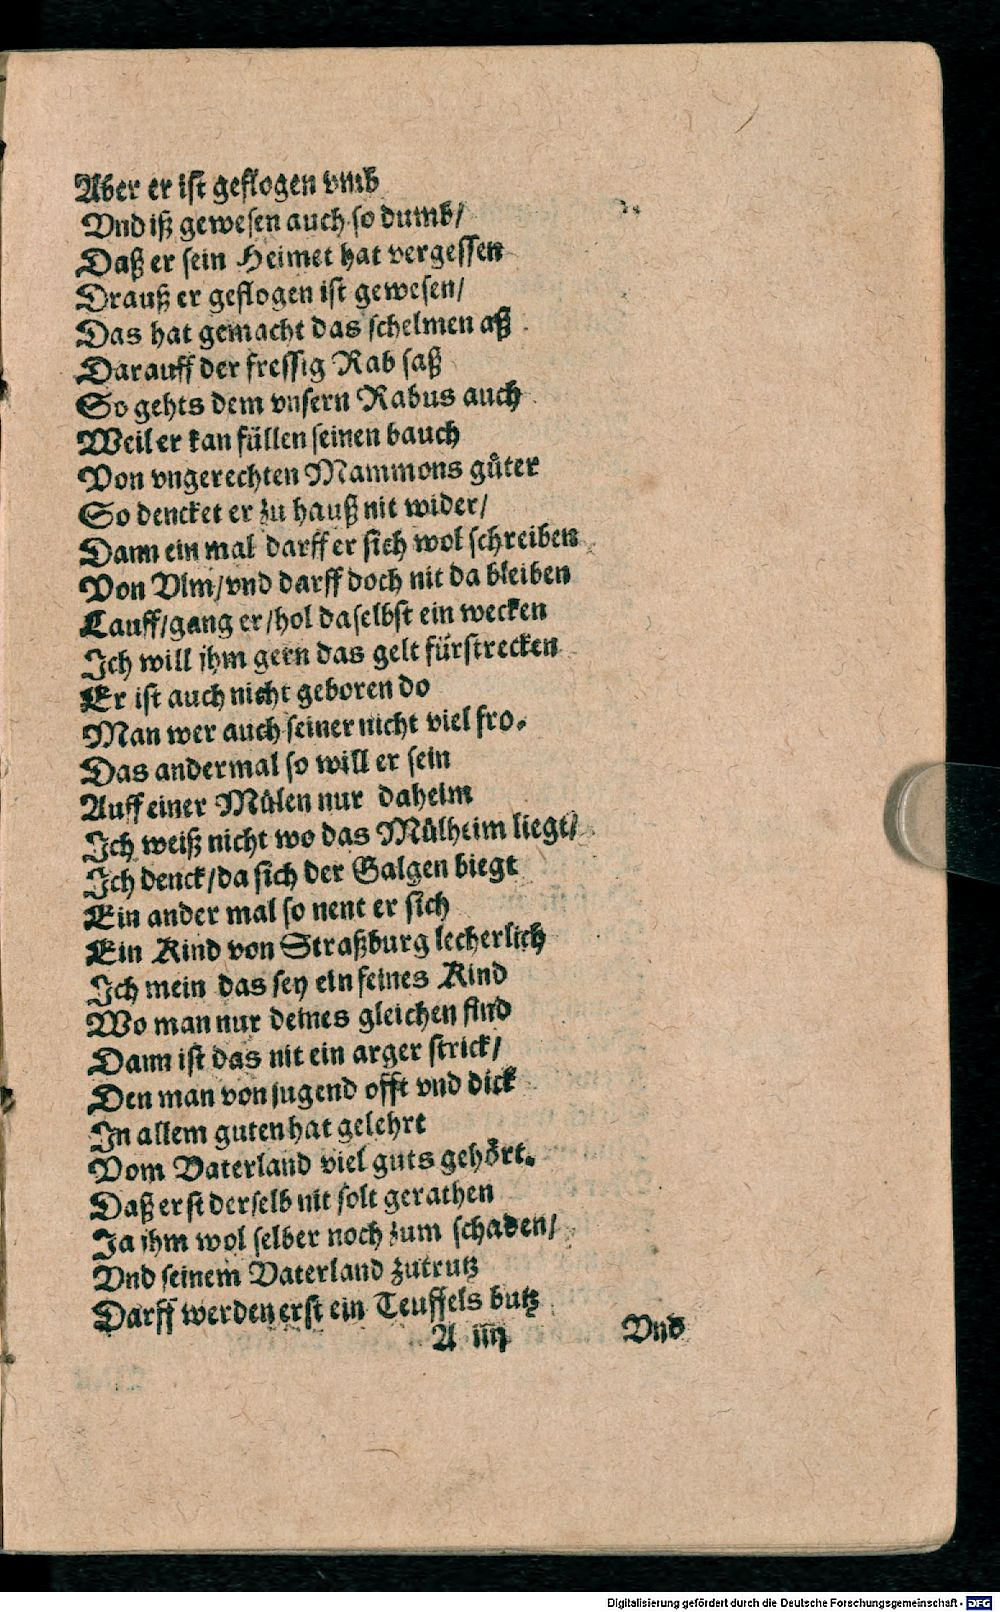 Aber er ist geflogen vmb
Vnd iß gewesen auch so dumb/
Daß er sein Heimet hat vergessen
Drauß er geflogen ist gewesen/
Das hat gemacht das schelmen aß
Darauff der fressig Rab saß
So gehts dem vnsern Rabus auch
Weil er kan füllen seinen bauch
Von vngerechten Mammons güter
So dencket er zu hauß nit wider/
Dann ein mal darff er sich wol schreiben
Von Vlm/vnd darff doch nit da bleiben
Lauff/gang er/hol daselbst ein wecken
Ich will ihm gern das gelt fürstrecken
Er ist auch nicht geboren do
Man wer auch seiner nicht viel fro.
Das andermal so will er sein
Auff einer Mülen nur daheim
Ich weiß nicht wo das Mülheim liegt/
Ich denck/da sich der Galgen biegt
Ein ander mal so nent er sich
Ein Kind von Straßburg lecherlich
Ich mein das sey ein feines Kind
Wo man nur deines gleichen find
Dann ist das nit ein arger strick/
Den man von jugend offt vnd dick
In allem guten hat gelehrt
Vom Vaterland viel guts gehört.
Daß erst derselb nit solt gerathen
Ja ihm wol selber noch zum schaden/
Vnd seinem Vaterland zutrutz
Darff werden erst ein Teuffels butz
A iiij Vnd
Digitalisierung gefördert durch die Deutsche Forschungsgemeinschaft - DFG